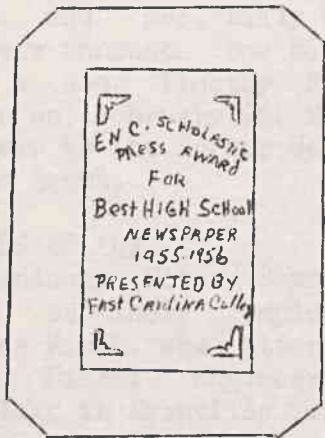 EN C. SCHOLASTIC
PRESS AWARD
FOR
Best HIGH SCHool
NEWSPAPER
1955-1956
PRESENTED BY
East Carolina College